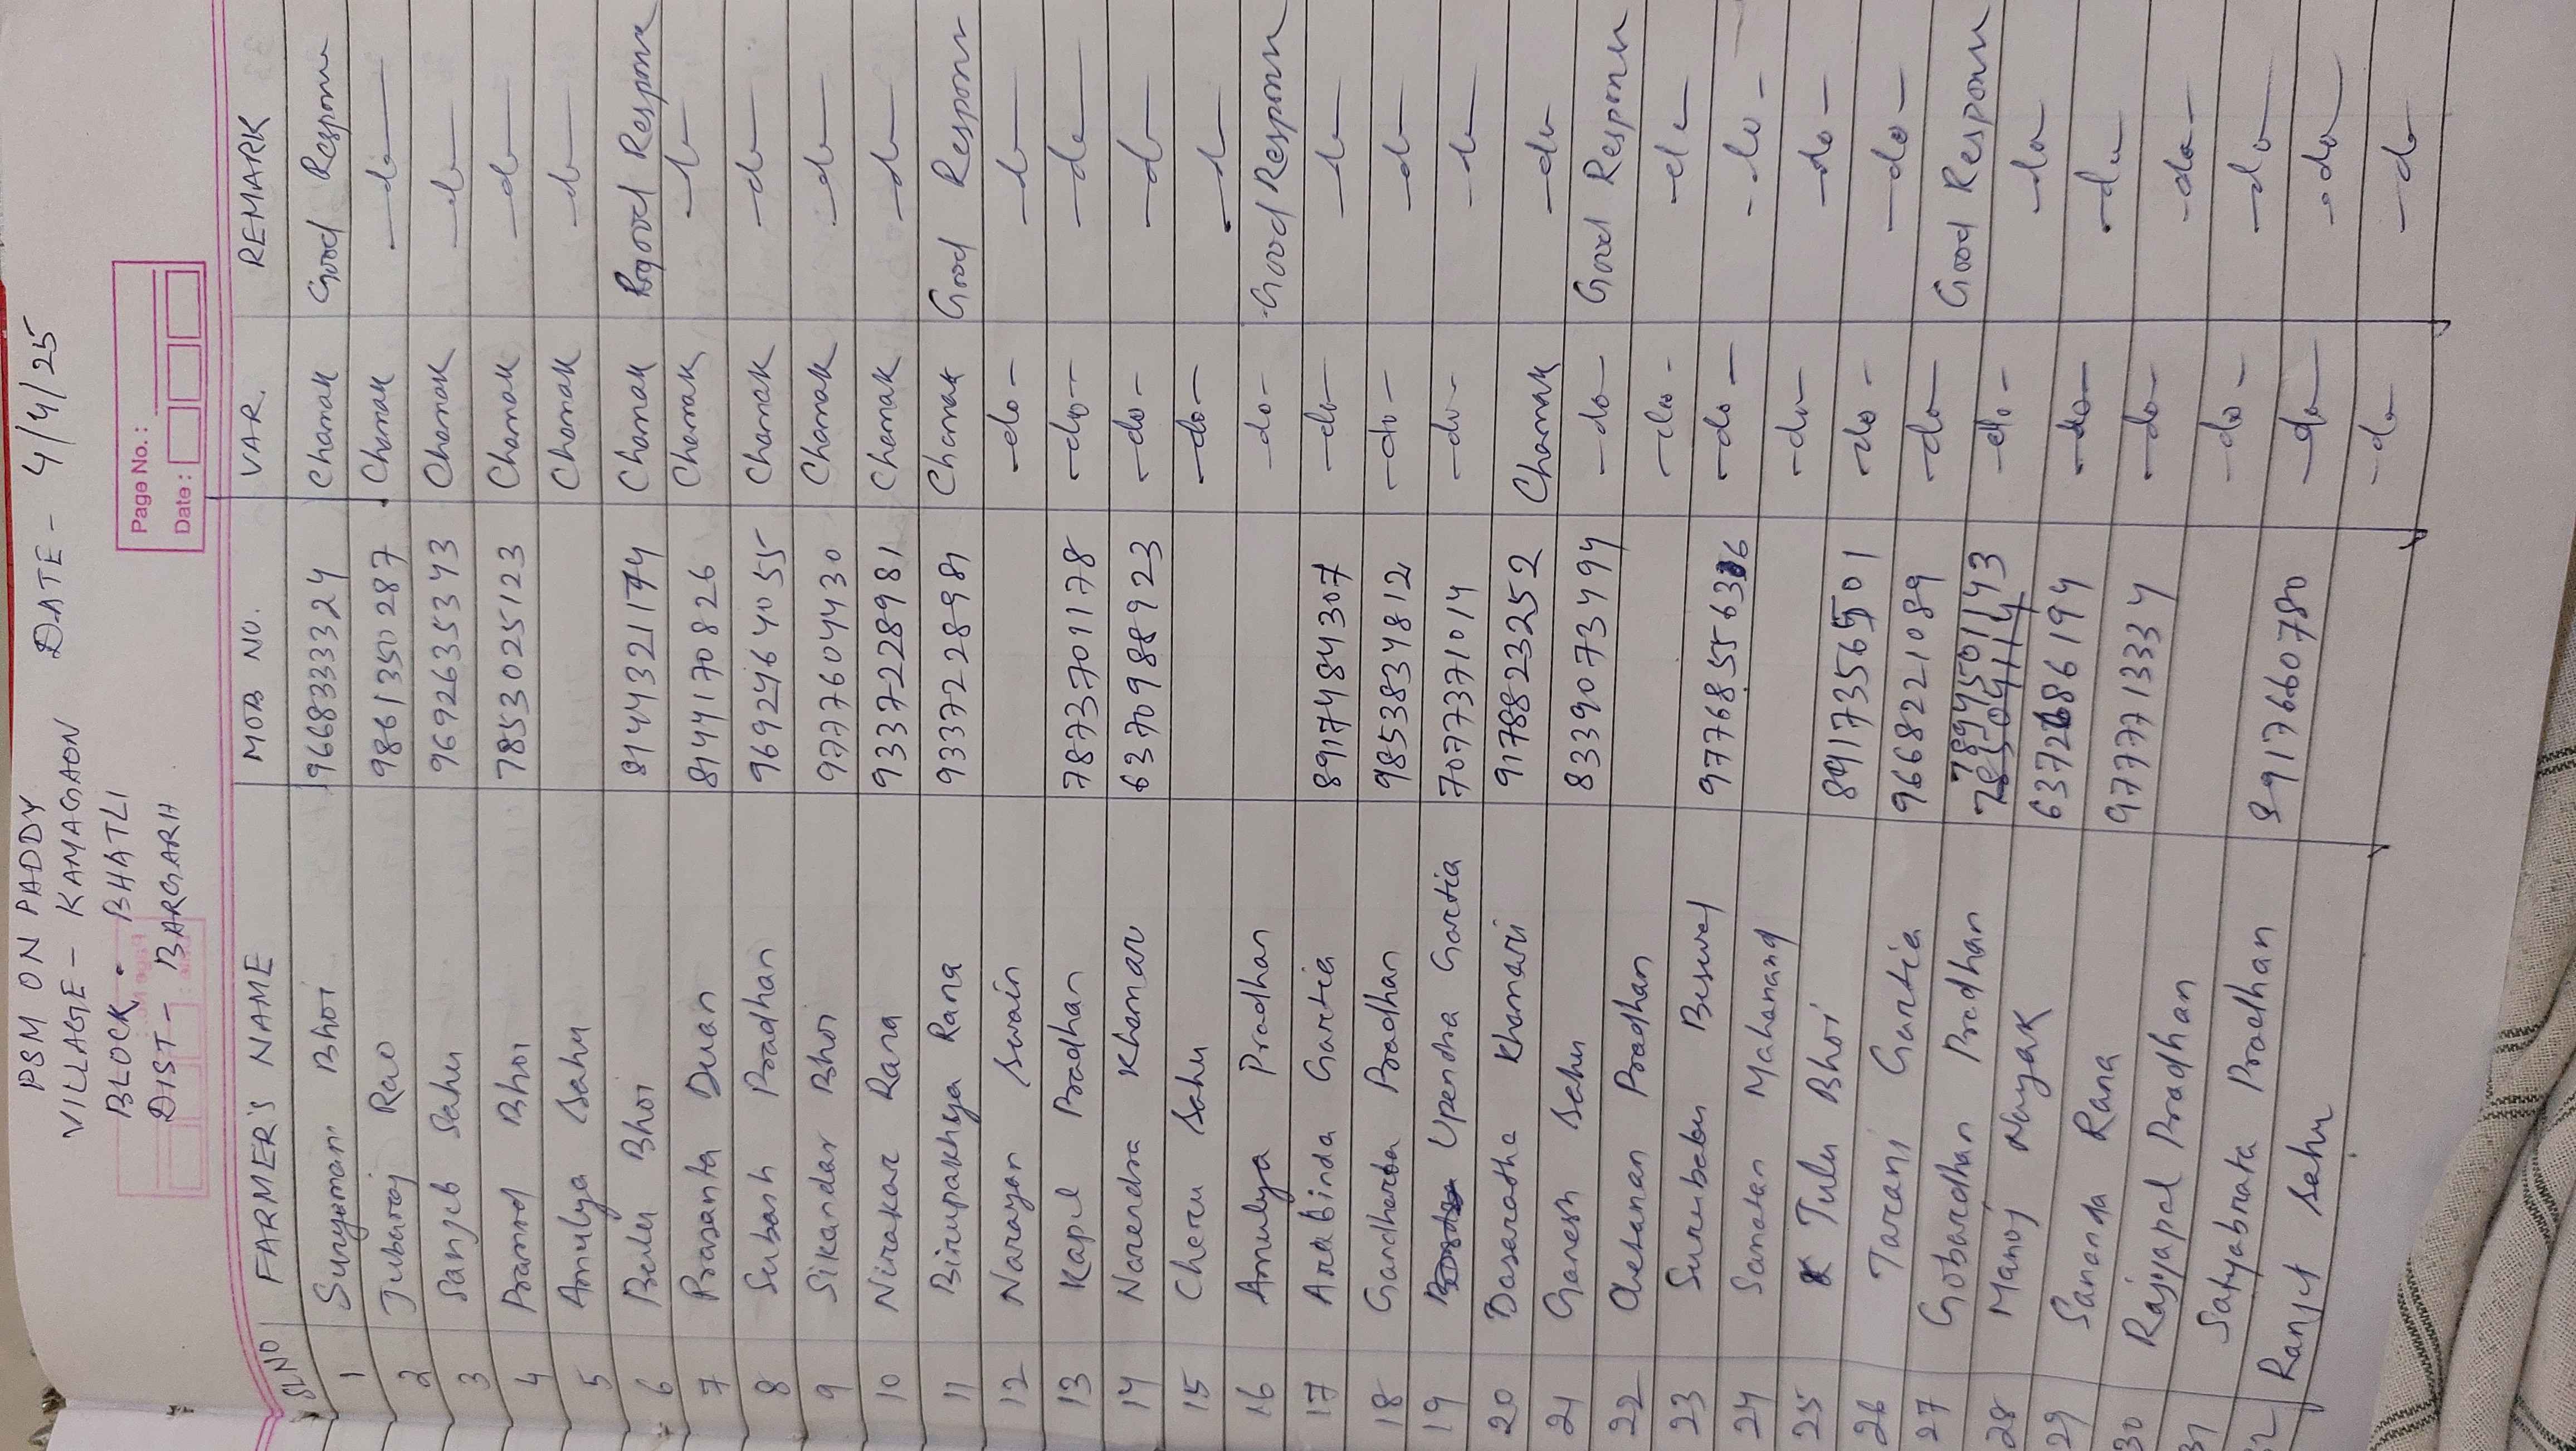 PSM ON PADDY
VILLAGE - KAMAGAON DATE - 4/4/25
BLOCK - BHATLI
DIST - BARGARH
Page No.:
Date:
SL NO FARMER'S NAME MOB NO. VAR. REMARK
1 Suryamani Bhoi 9668333324 Chamak Good Response
2 Jubaraj Rao 9861350287 Chamak -do-
3 Sanjib Sahu 9692635343 Chamak -do-
4 Pramod Bhoi 7853025123 Chamak -do-
5 Amulya Sahu Chamak -do-
6 Belu Bhoi 8144321174 Chamak Good Response
7 Prasanta Duan 8144170826 Chamak -do-
8 Subash Pradhan 9692464055 Chamak -do-
9 Sikandar Bhoi 9777604430 Chamak -do-
10 Nirakar Rana 9337228981 Chamak -do-
11 Birupakhya Rana 9337228981 Chamak Good Response
12 Narayan Swain -do- -do-
13 Kapil Pradhan 7873701178 -do- -do-
14 Narendra Khamari 6370988923 -do- -do-
15 Cheru Sahu -do- -do-
16 Amulya Pradhan -do- Good Response
17 Arabinda Gartia 8917484307 -do- -do-
18 Gandharba Pradhan 9853834812 -do- -do-
19 Upendra Gartia 7077371014 -do- -do-
20 Dasarathe Khamari 9178823252 Chamak -do-
21 Ganesh Sahu 8339073494 -do- Good Response
22 Pradhan -do- -do-
23 Surubabu Beswal 9776855636 -do- -do-
24 Sanatan Mahanand -do- -do-
25 Tulu Bhoi 8917356501 -do- -do-
26 Tarani Gartia 9668221089 -do- -do-
27 Gobardhan Pradhan 7894501143 -do- Good Response
28 Manoj Nayak 6372686194 -do- -do-
29 Sananda Rana 9777713334 -do- -do-
30 Rajyapal Pradhan -do- -do-
31 Satyabrata Pradhan 8917660780 -do- -do-
32 Ranjit Sahu -do- -do-
-do- -do-